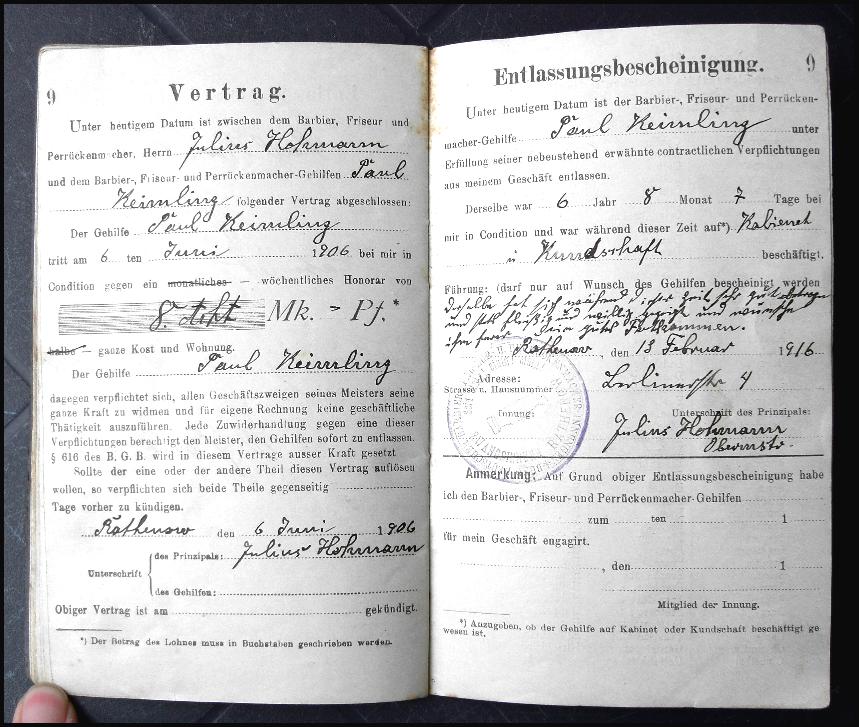 9
Vertrag.
Unter heutigem Datum ist zwischen dem Barbier, Friseur und
Perrückenmacher, Herrn Julius Hohmann
und dem Barbier-, Friseur- und Perrückenmacher-Gehilfen Paul
Keimling folgender Vertrag abgeschlossen:
Der Gehilfe Paul Keimling
tritt am 6 ten Juni 1906 bei mir in
Condition gegen ein monatliches — wöchentliches Honorar von
8. Acht Mk. = Pf.*
halbe — ganze Kost und Wohnung.
Der Gehilfe Paul Keimling
dagegen verpflichtet sich, allen Geschäftszweigen seines Meisters seine
ganze Kraft zu widmen und für eigene Rechnung keine geschäftliche
Thätigkeit auszuführen. Jede Zuwiderhandlung gegen eine dieser
Verpflichtungen berechtigt den Meister, den Gehilfen sofort zu entlassen.
§ 616 des B. G. B. wird in diesem Vertrage ausser Kraft gesetzt
Sollte der eine oder der andere Theil diesen Vertrag auflösen
wollen, so verpflichten sich beide Theile gegenseitig
Tage vorher zu kündigen.
Rathenow den 6 Juni 1906
des Prinzipals: Julius Hohmann
Unterschrift
des Gehilfen:
Obiger Vertrag ist am gekündigt.
*) Der Betrag des Lohnes muss in Buchstaben geschrieben werden.
9
Entlassungsbescheinigung.
Unter heutigem Datum ist der Barbier-, Friseur- und Perrücken-
macher-Gehilfe Paul Keimling unter
Erfüllung seiner nebenstehend erwähnte contractlichen Verpflichtungen
aus meinem Geschäft entlassen.
Derselbe war 6 Jahr 8 Monat 7 Tage bei
mir in Condition und war während dieser Zeit auf*) Kabienet
u Kundschaft beschäftigt.
Führung: (darf nur auf Wunsch des Gehilfen bescheinigt werden
Derselbe hat sich während dieser Zeit sehr gut betragen
und stets fleißig und willig gezeigt und wünsche
ihm ferner sein gutes Fortkommen.
Rathenow, den 13 Februar 1916
Adresse:
Strasse u. Hausnummer Berlinerstr 4
Innung:
Unterschrift des Prinzipals:
Julius Hohmann
Obermstr.
Anmerkung: Auf Grund obiger Entlassungsbescheinigung habe
ich den Barbier-, Friseur- und Perrückenmacher-Gehilfen
zum ten 1
für mein Geschäft engagirt.
, den 1
Mitglied der Innung.
*) Anzugeben, ob der Gehilfe auf Kabinet oder Kundschaft beschäftigt ge
wesen ist.